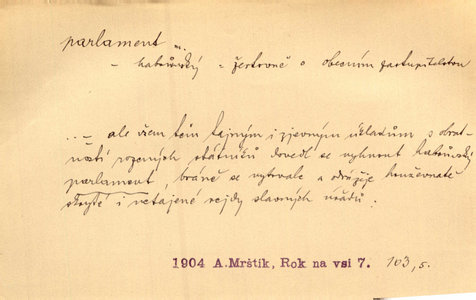 parlament ...
– habrůvský = žertovně o obecním zastupitelstvu
... – ale všem těm tajným i zjevným úkladům s obrat-
ností rozených státníků dovedl se vyhnout habrůvský
parlament, bráně se vytrvale a odrážeje houževnatě
skryté i netajené rejdy slavných úřadů.
1904 A. Mrštík, Rok na vsi 7. 103,5.